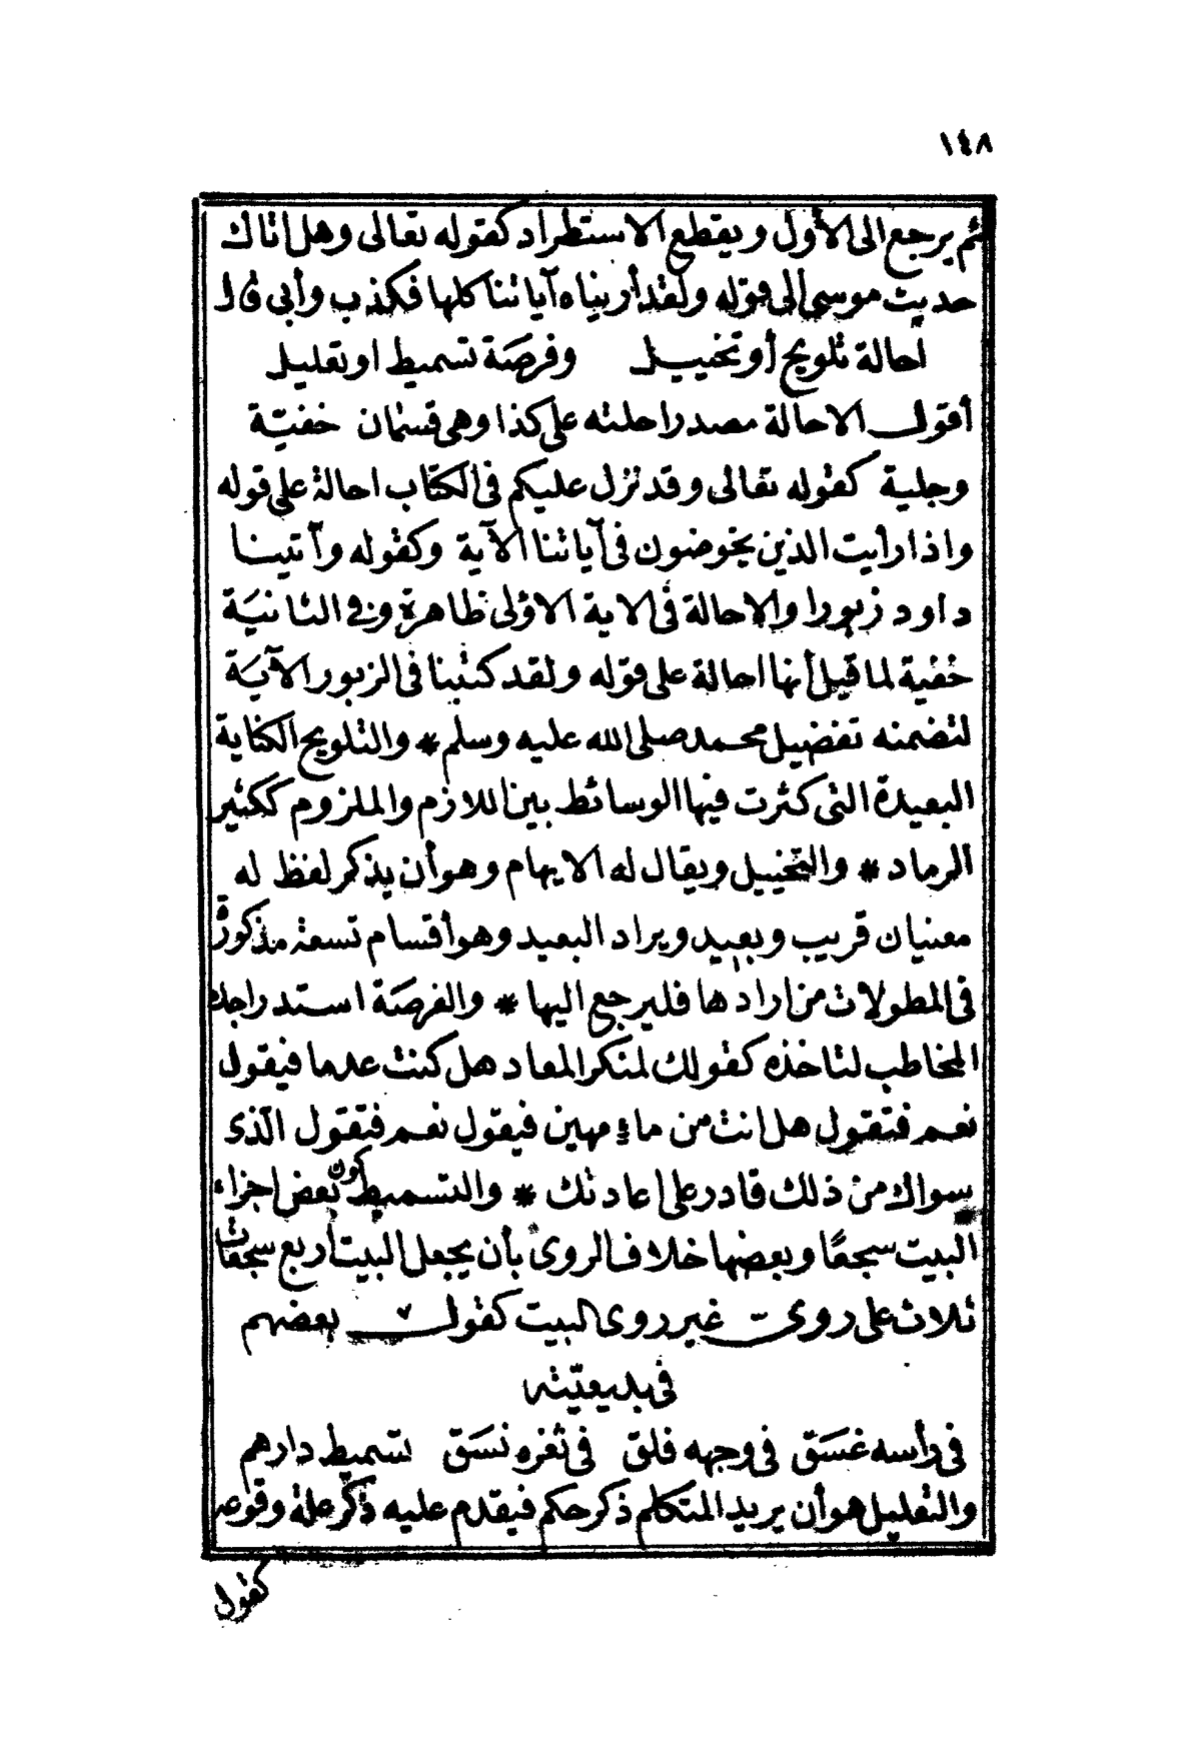 ١٤٨
ثم يرجع الى الأول ويقطع الاستطراد كقوله تعالى وهل اتاك
حديث موسى الى قوله ولقد أريناه آياتنا كلها فكذب وأبى قال
احالة تلويح أو تخييل وفرصة تسميط او تعليل
أقول الاحالة مصدر احلته على كذا وهى قسمان خفيّة
وجلية كقوله تعالى وقد نزل عليكم فى الكتاب احالة على قوله
واذا رأيت الذين يخوضون فى آياتنا الآية وكقوله وآتينا
داود زبورا والاحالة فى الاية الاولى ظاهرة وفى الثانية
خفية لما قيل أنها احالة على قوله ولقد كتبنا فى الزبور الآية
لتضمنه تفضيل محمد صلى الله عليه وسلم * والتلويح الكناية
البعيدة التى كثرت فيها الوسائط بين اللازم والملزوم ككثير
الرماد * والتخييل ويقال له الايهام وهو أن يذكر لفظ له
معنيان قريب وبعيد ويراد البعيد وهو أقسام تسعة مذكورة
فى المطولات من ارادها فليرجع اليها * والفرصة استدراجك
المخاطب لتاخذه كقولك لمنكر المعاد هل كنت عدما فيقول
نعم فتقول هل انت من ماء مهين فيقول نعم فتقول الذى
سواك من ذلك قادر على اعادتك * والتسميط كون بعض اجزاء
البيت سجعًا وبعضها خلاف الروى بأن يجعل البيت أربع سجعات
ثلاث على روى غير روى البيت كقول بعضهم
فى بديعيّته
فى رأسه غسق فى وجهه فلق فى ثغره نسق تسميط دارهم
والتعليل هو أن يريد المتكلم ذكر حكم فيقدم عليه ذكر علة وقوعه
كقول